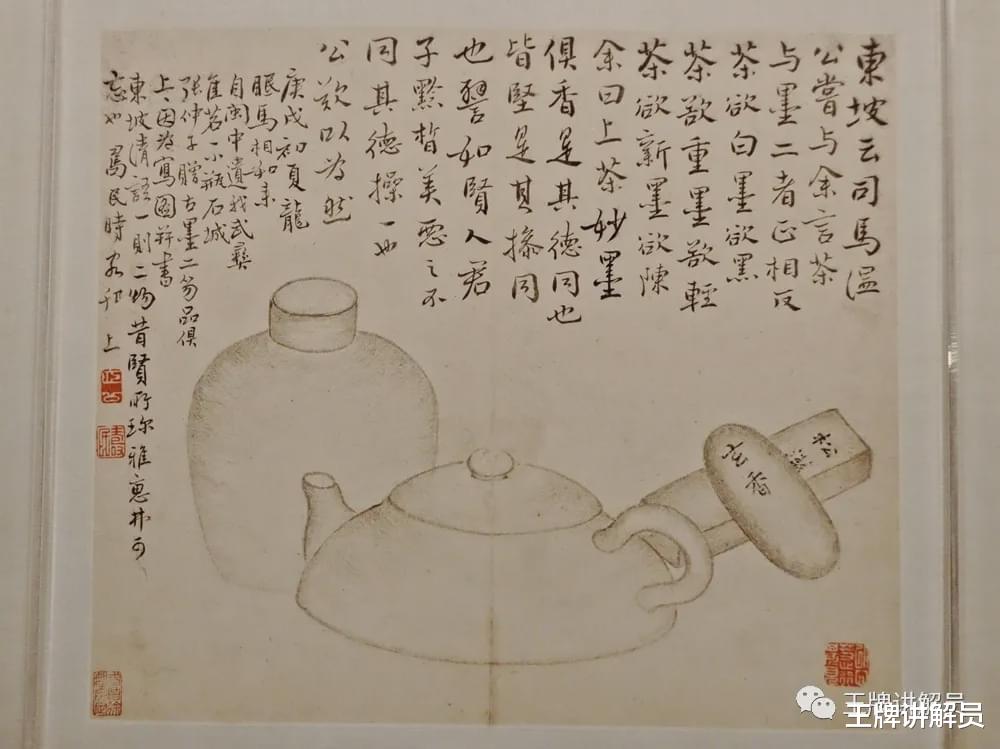 東坡云司馬温
公嘗与余言茶
与墨二者正相反
茶欲白墨欲黑
茶欲重墨欲輕
茶欲新墨欲陳
余曰上茶妙墨
俱香是其德同也
皆堅是其操同
也譬如賢人君
子黔皙美惡之不
同其德操一也
公歎以为然
庚戌初夏龍
眠馬相如来
自閩中遺我武彛
雀茗一小瓶石城
張仲子贈古墨二笏品俱
上上因为寫圖并書
東坡清語一則二物昔賢所珍雅惠并可
忘也
上
松
香
王牌讲解员
王牌讲解员